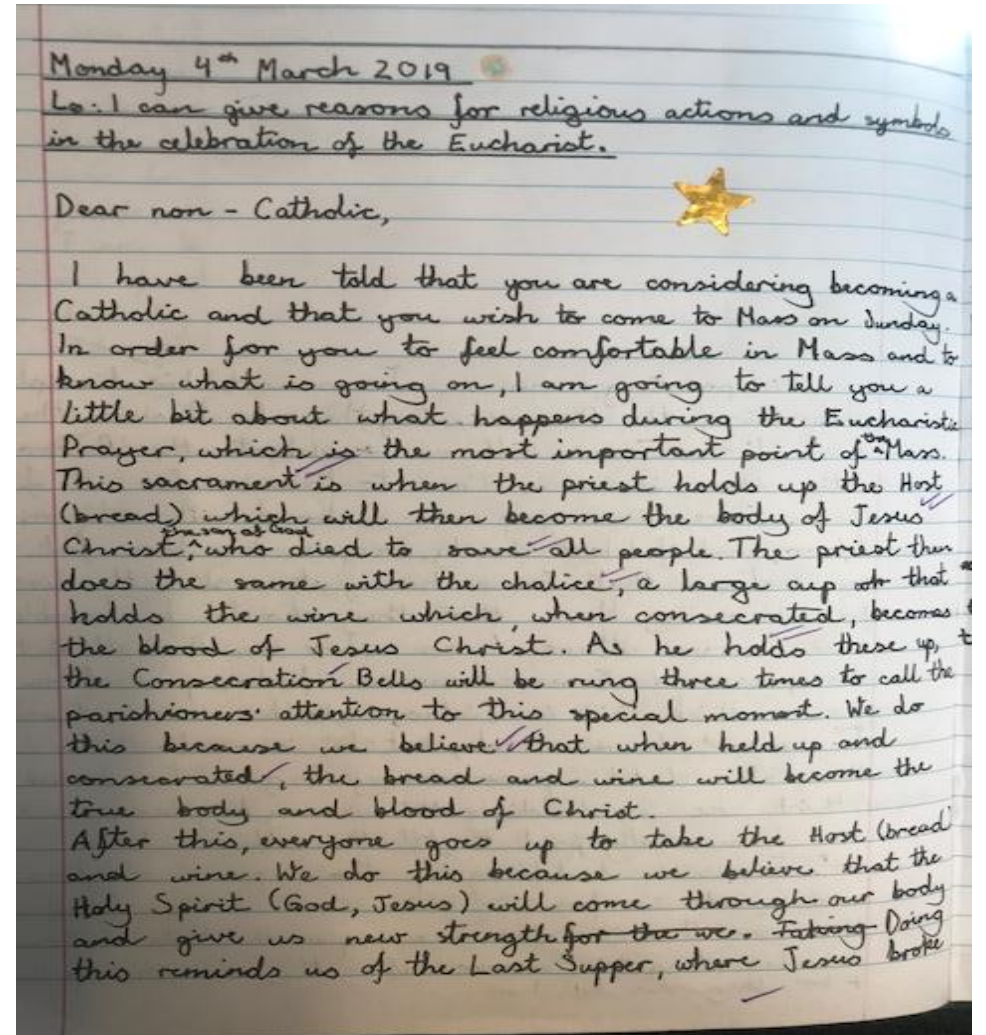 Monday 4th March 2019
Lo: I can give reasons for religious actions and symbols
in the celebration of the Eucharist.
Dear non - Catholic,
I have been told that you are considering becoming a
Catholic and that you wish to come to Mass on Sunday.
In order for you to feel comfortable in Mass and to
know what is going on, I am going to tell you a
little bit about what happens during the Eucharistic
Prayer, which is the most important point of the Mass.
This sacrament is when the priest holds up the Host
(bread) which will then become the body of Jesus
Christ, the son of God who died to save all people. The priest then
does the same with the chalice, a large cup that
holds the wine which, when consecrated, becomes
the blood of Jesus Christ. As he holds these up,
the Consecration Bells will be rung three times to call the
parishioners' attention to this special moment. We do
this because we believe that when held up and
consecrated, the bread and wine will become the
true body and blood of Christ.
After this, everyone goes up to take the Host (bread
and wine. We do this because we believe that the
Holy Spirit (God, Jesus) will come through our body
and give us new strength for the we. Taking Doing
this reminds us of the Last Supper, where Jesus broke